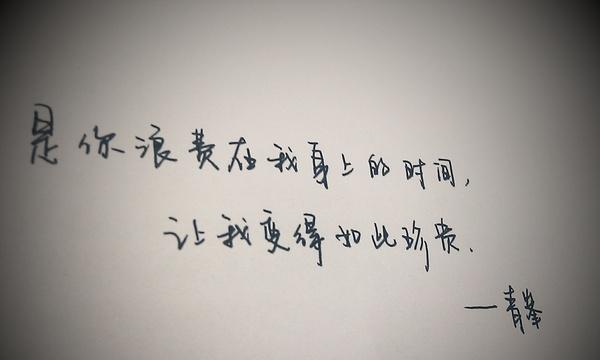 是你浪费在我身上的时间,
让我变得如此珍贵.
—青峰